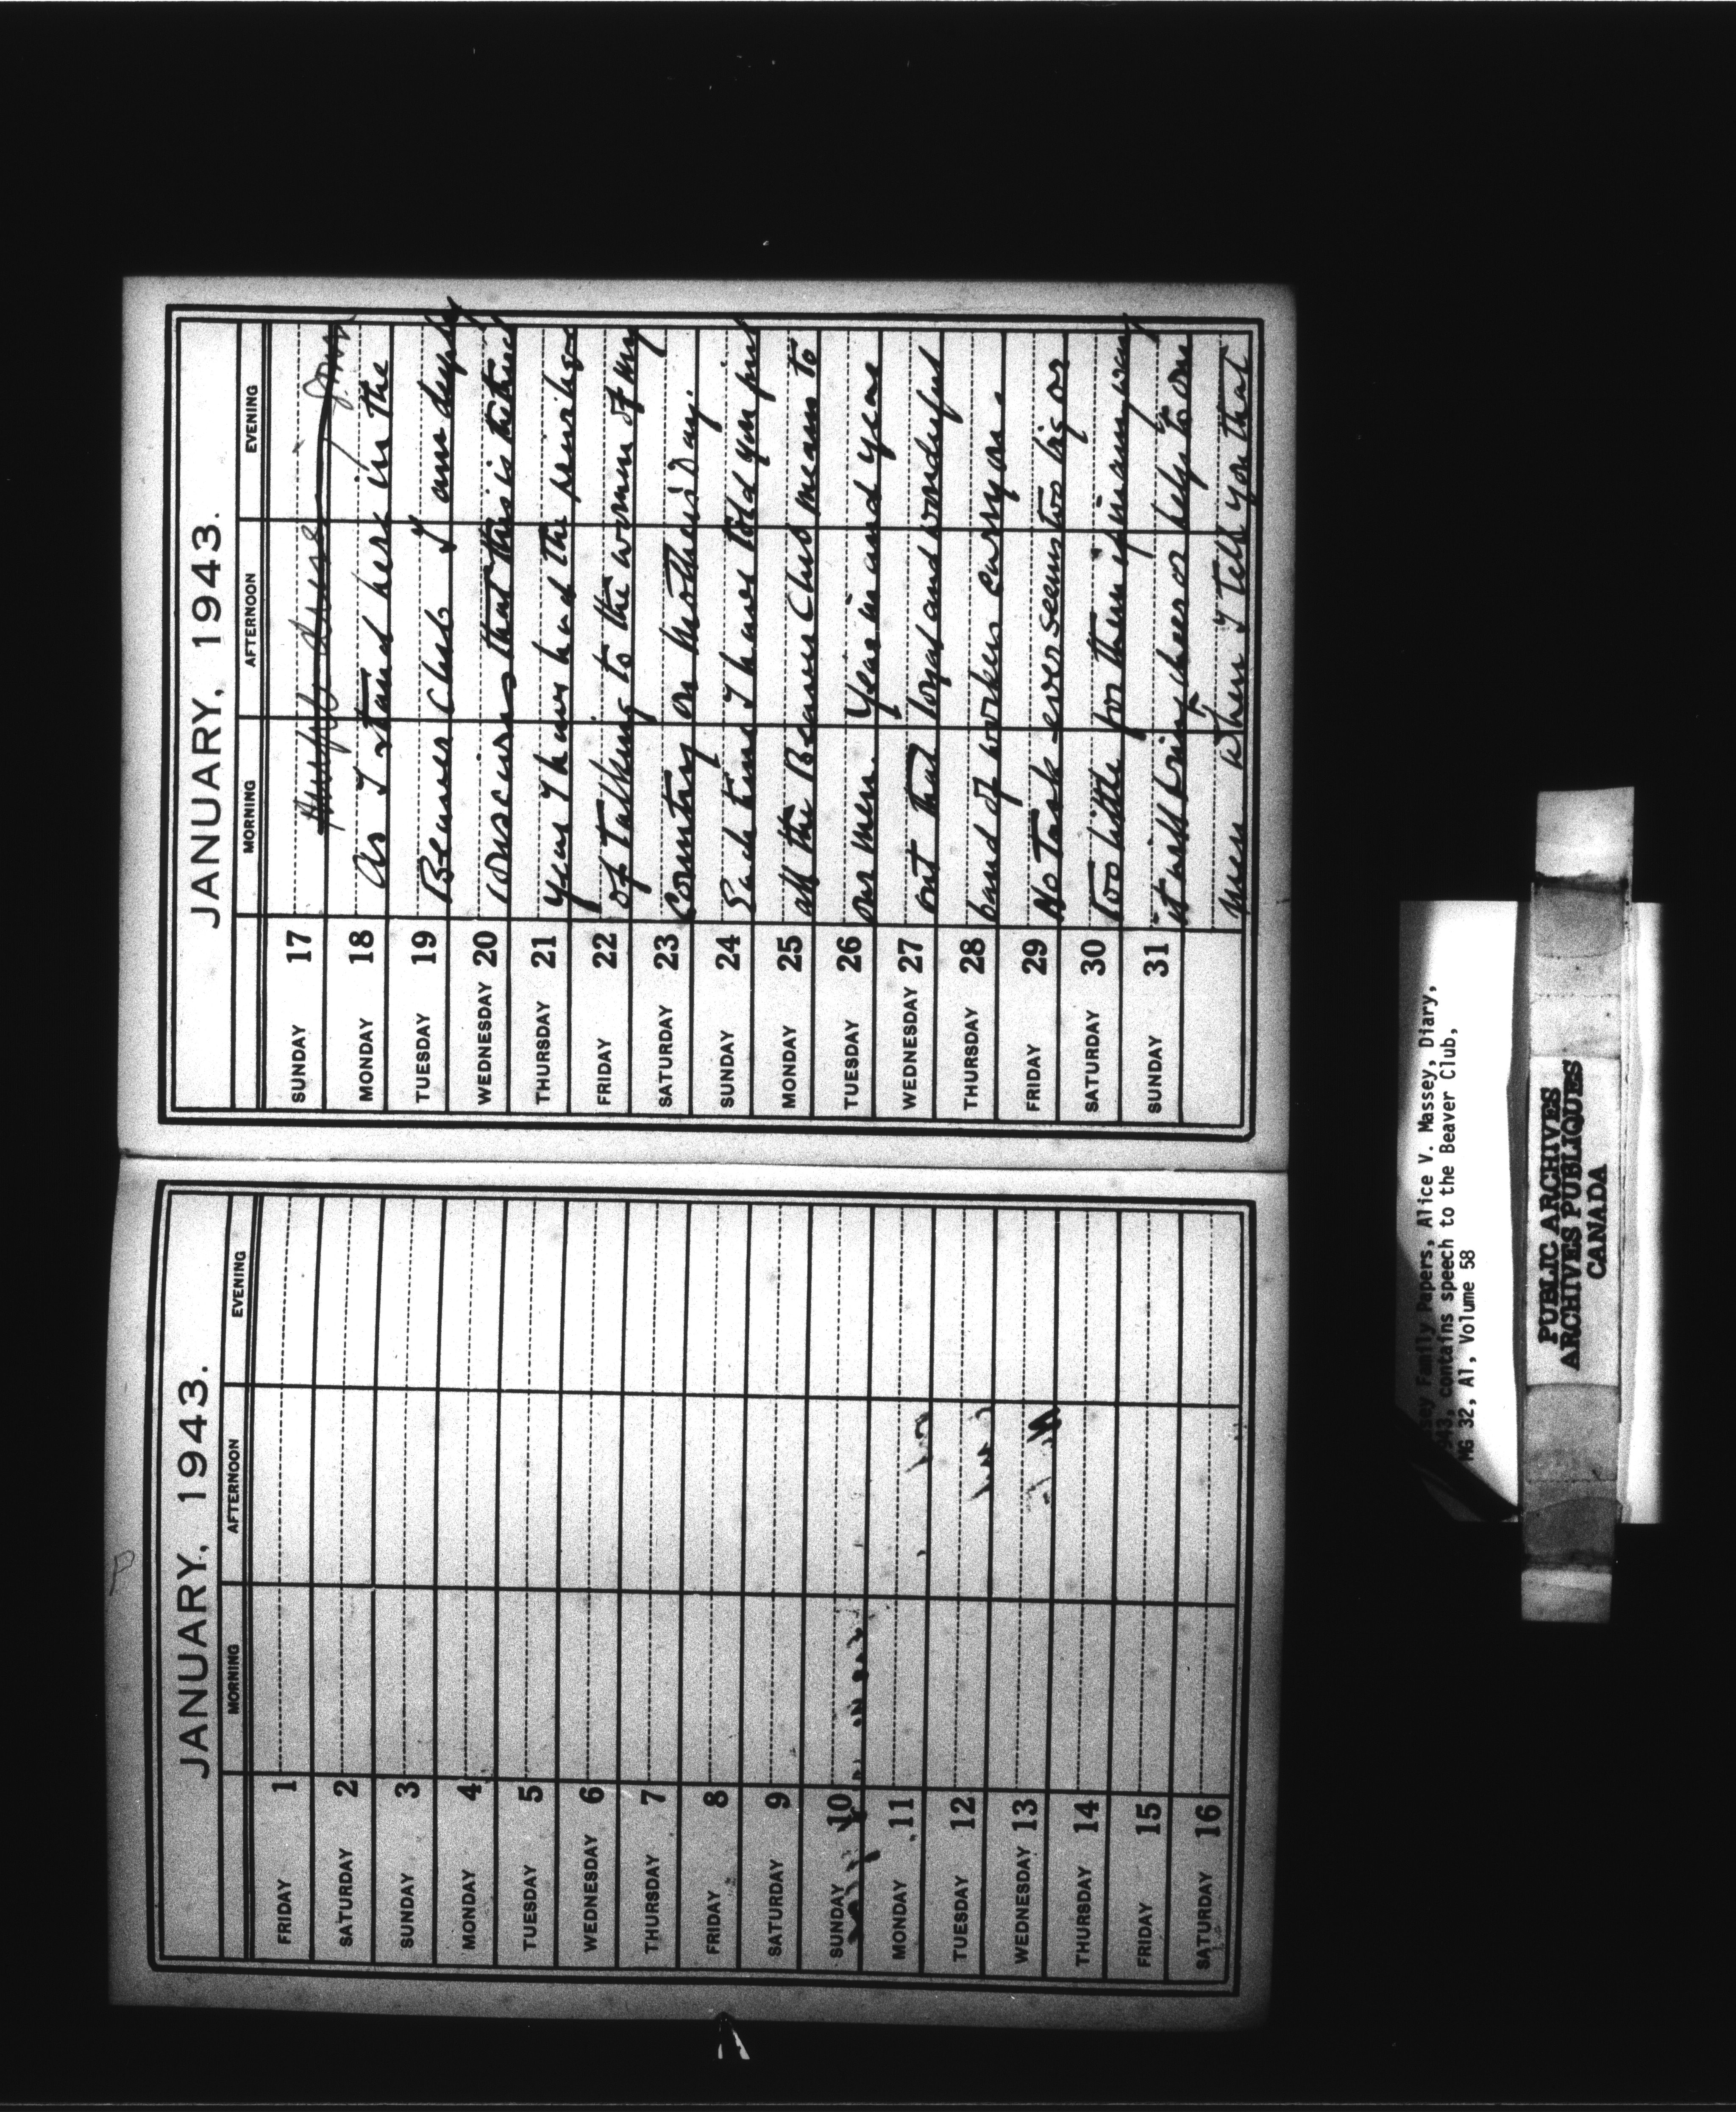 JANUARY, 1943.
MORNING AFTERNOON EVENING
FRIDAY 1
SATURDAY 2
SUNDAY 3
MONDAY 4
TUESDAY 5
WEDNESDAY 6
THURSDAY 7
FRIDAY 8
SATURDAY 9
SUNDAY 10
MONDAY 11
TUESDAY 12
WEDNESDAY 13
THURSDAY 14
FRIDAY 15
SATURDAY 16
JANUARY, 1943.
MORNING AFTERNOON EVENING
SUNDAY 17
MONDAY 18 As I stand here in the
TUESDAY 19 Beaver Club I am deeply
WEDNESDAY 20 conscious that this is the third
THURSDAY 21 year I have had the privilege
FRIDAY 22 of talking to the women of my
SATURDAY 23 Country on Mother's Day.
SUNDAY 24 Each time I have told you just
MONDAY 25 all the Beaver Club means to
TUESDAY 26 our men. Year in and year
WEDNESDAY 27 out that loyal and wonderful
THURSDAY 28 band of workers carry on.
FRIDAY 29 No task ever seems too big or
SATURDAY 30 too little for them if in any way
SUNDAY 31 it will bring cheer or help to our
men when I tell you that
sey Family Papers, Alice V. Massey, Diary,
943, contains speech to the Beaver Club,
MG 32, A1, Volume 58
PUBLIC ARCHIVES
ARCHIVES PUBLIQUES
CANADA